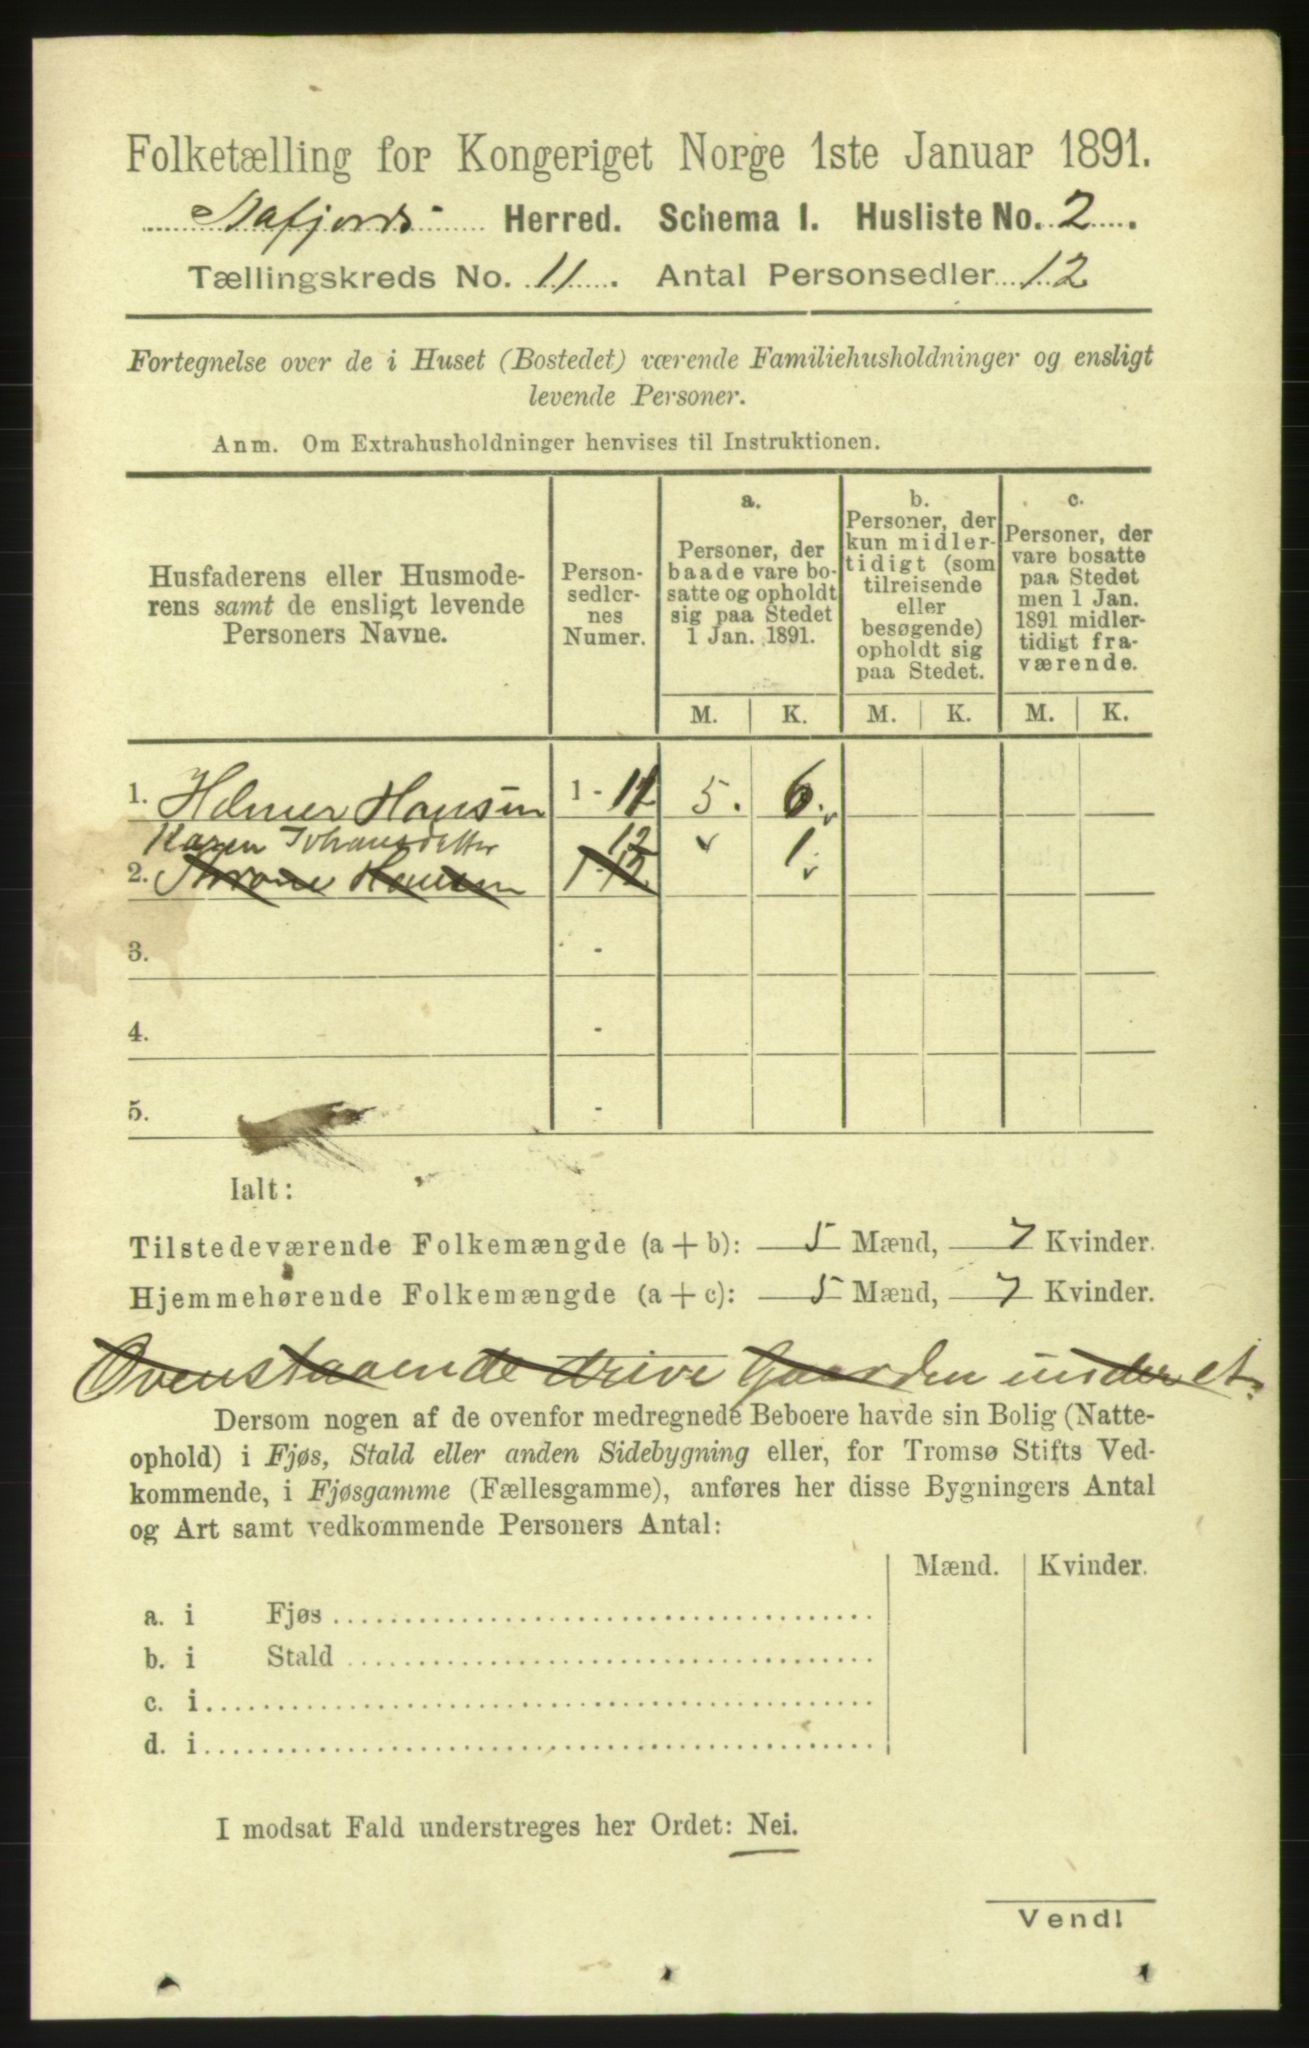 Folketælling for Kongeriget Norge 1ste Januar 1891.
Herred. Schema I. Husliste No. 2.
Tællingskreds No. 11. Antal Personsedler 12
Fortegnelse over de i Huset (Bostedet) værende Familiehusholdninger og ensligt
levende Personer.
Anm. Om Extrahusholdninger henvises til Instruktionen.
Husfaderens eller Husmode-
rens samt de ensligt levende
Personers Navne.
Person-
sedler-
nes
Numer.
a.
Personer, der
baade vare bo-
satte og opholdt
sig paa Stedet
1 Jan. 1891.
b.
Personer, der
kun midler-
tidigt (som
tilreisende
eller
besøgende)
opholdt sig
paa Stedet.
c.
Personer, der
vare bosatte
paa Stedet
men 1 Jan.
1891 midler-
tidigt fra-
værende.
M. K. M. K. M. K.
1. Helmer Hansen 1 - 11 5. 6.
Karen Johansdatter 12 1
2. Hansen 1-12.
3. -
4. -
5. -
Ialt:
Tilstedeværende Folkemængde (a + b): 5 Mænd, 7 Kvinder.
Hjemmehørende Folkemængde (a + c): 5 Mænd, 7 Kvinder.
Ovenstaaende drive Gaarden under et.
Dersom nogen af de ovenfor medregnede Beboere havde sin Bolig (Natte-
ophold) i Fjøs, Stald eller anden Sidebygning eller, for Tromsø Stifts Ved-
kommende, i Fjøsgamme (Fællesgamme), anføres her disse Bygningers Antal
og Art samt vedkommende Personers Antal:
Mænd. Kvinder.
a. i Fjøs
b. i Stald
c. i
d. i
I modsat Fald understreges her Ordet: Nei.
Vend!